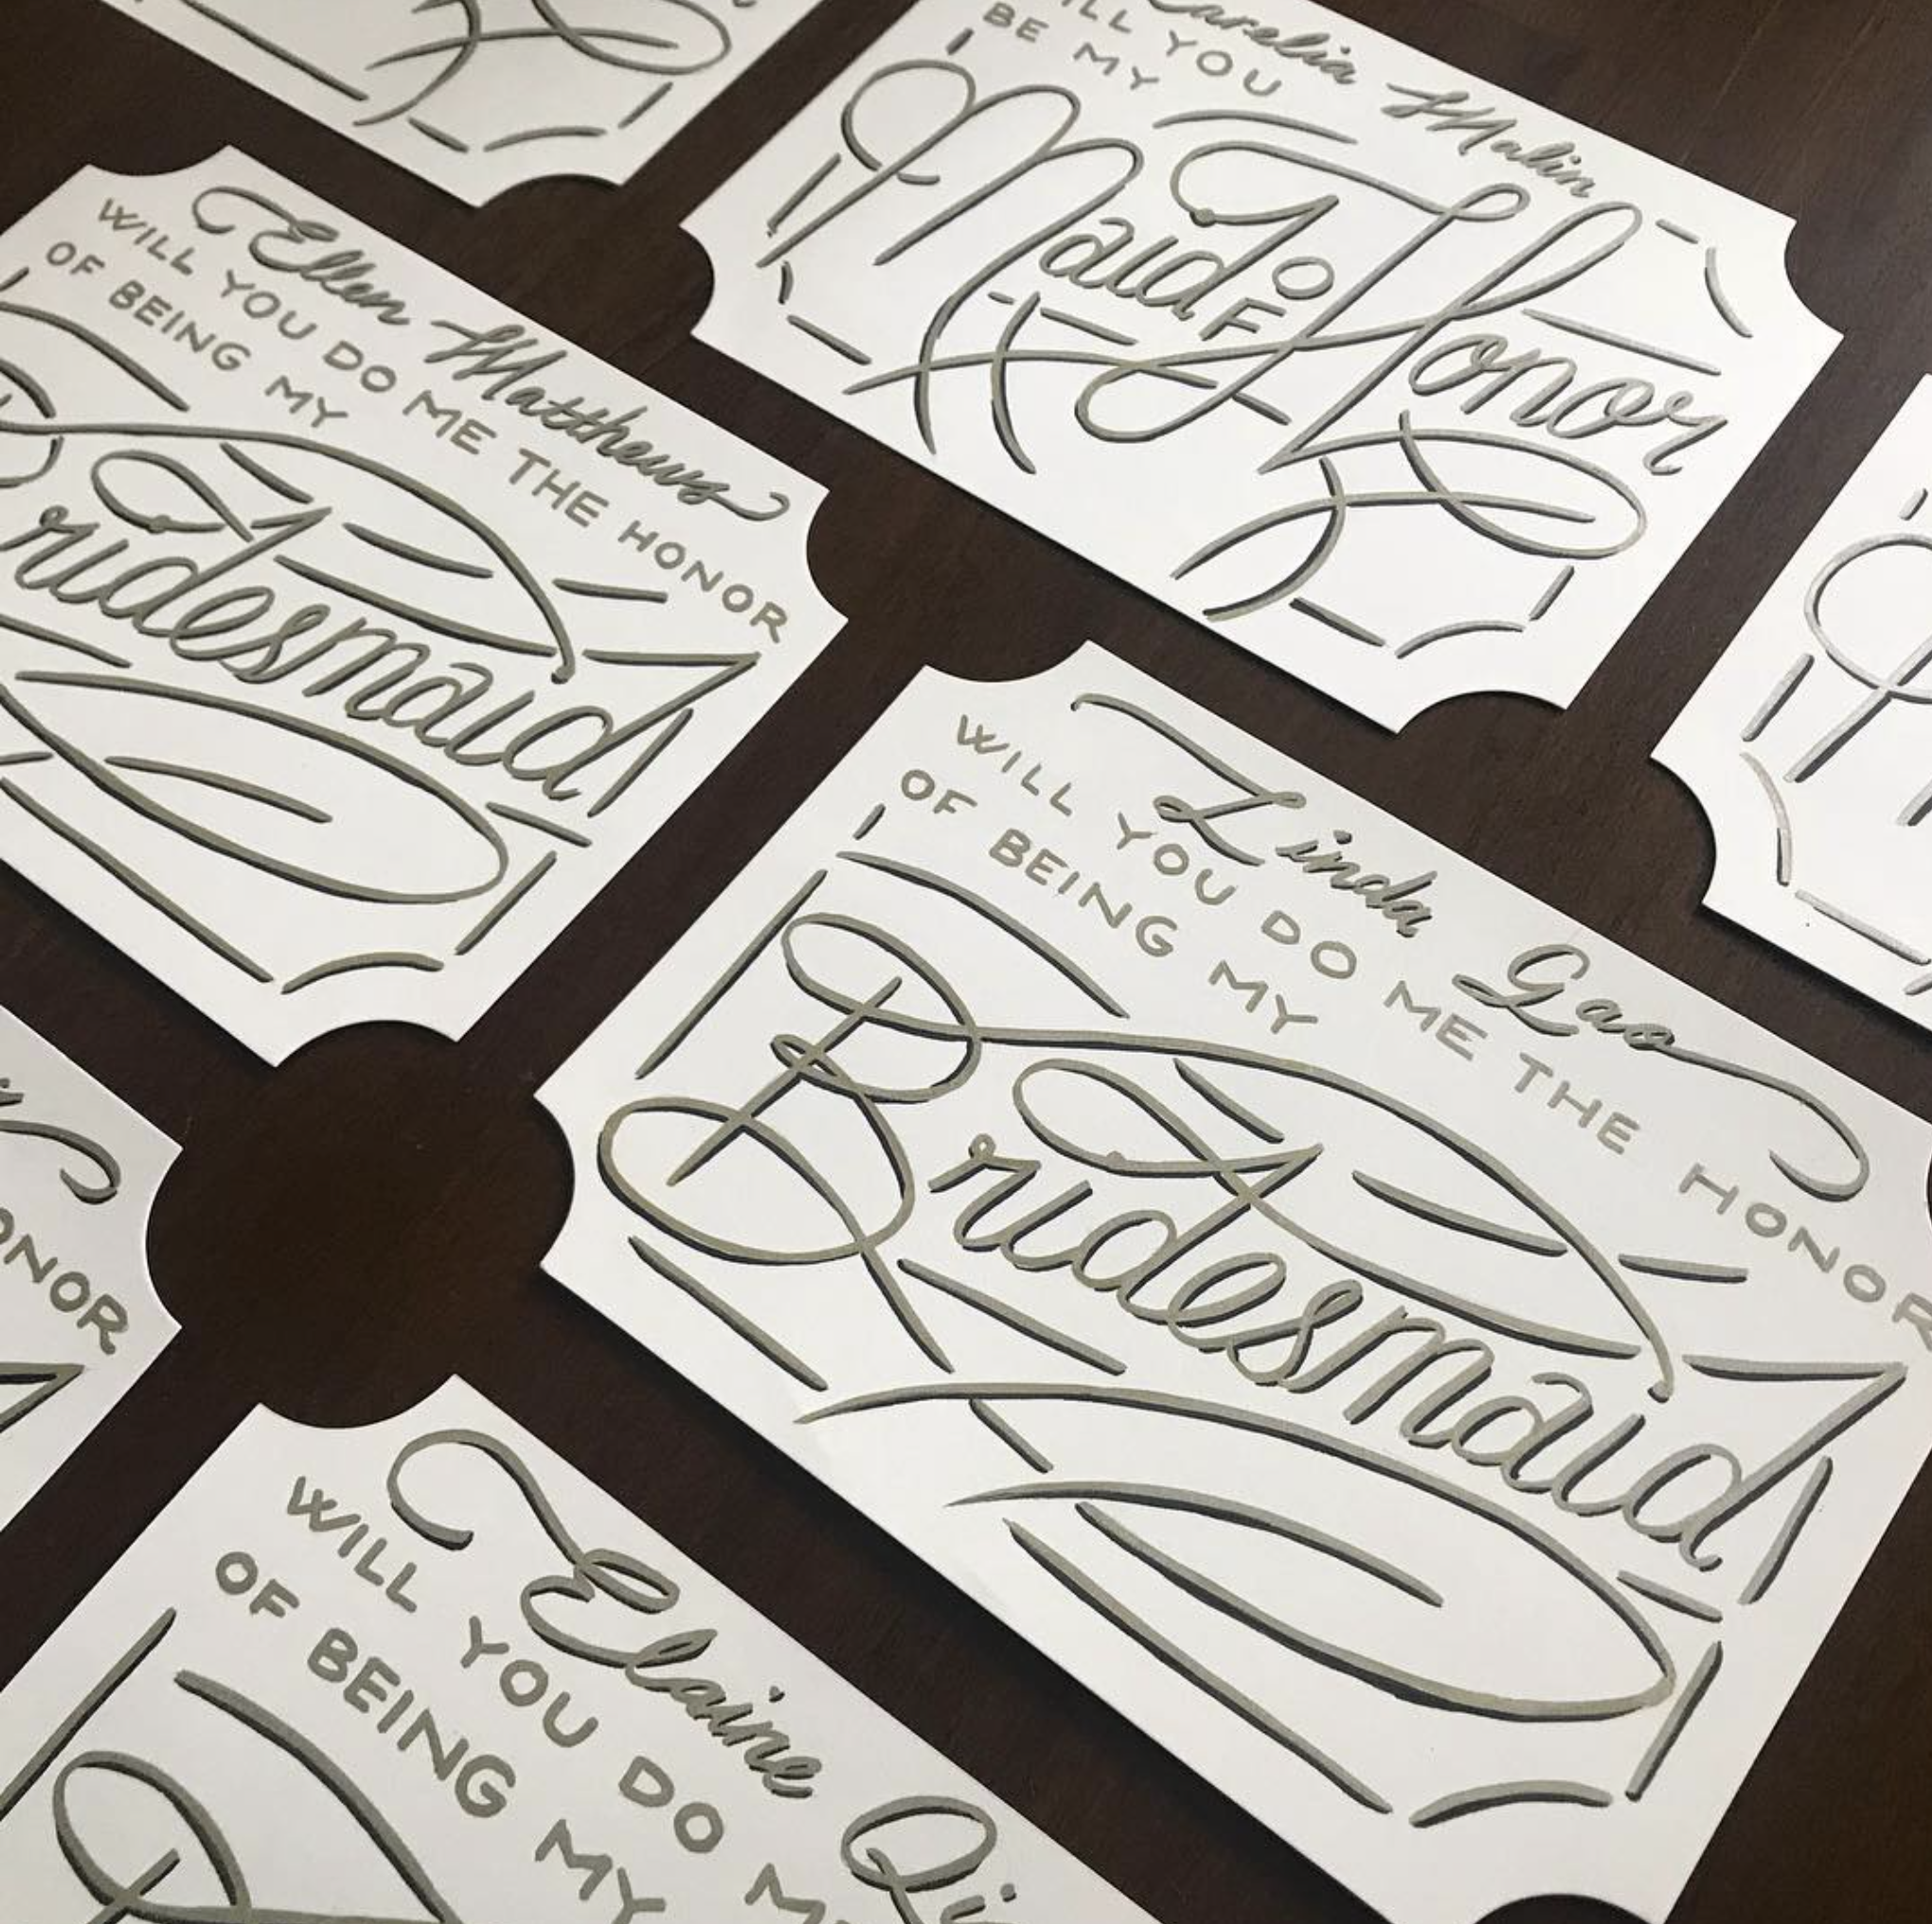 Malin
YOU
BE MY
Maid OF Honor
Ellen Matthews
WILL YOU DO ME THE HONOR
OF BEING MY
Bridesmaid
Linda Gao
WILL YOU DO ME THE HONOR
OF BEING MY
Bridesmaid
Elaine
WILL YOU DO
OF BEING MY